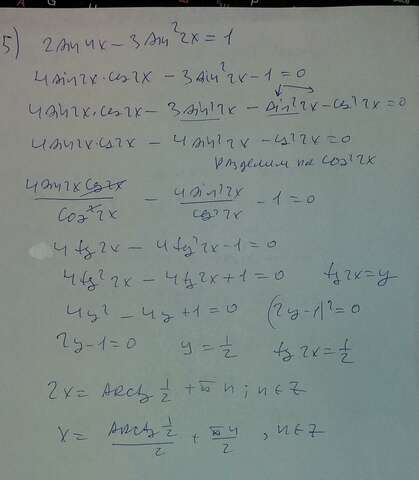 5) 2sin4x - 3sin²2x = 1
4sin2x·cos2x - 3sin²2x - 1 = 0
4sin2x·cos2x - 3sin²2x - sin²2x - cos²2x = 0
4sin2x·cos2x - 4sin²2x - cos²2x = 0
разделим на cos²2x
4sin2x cos2x / cos²2x - 4sin²2x / cos²2x - 1 = 0
4tg2x - 4tg²2x - 1 = 0
4tg²2x - 4tg2x + 1 = 0 tg2x = y
4y² - 4y + 1 = 0 (2y-1)² = 0
2y - 1 = 0 y = 1/2 tg2x = 1/2
2x = arctg 1/2 + πn; n∈Z
x = arctg 1/2 / 2 + πn/2, n∈Z